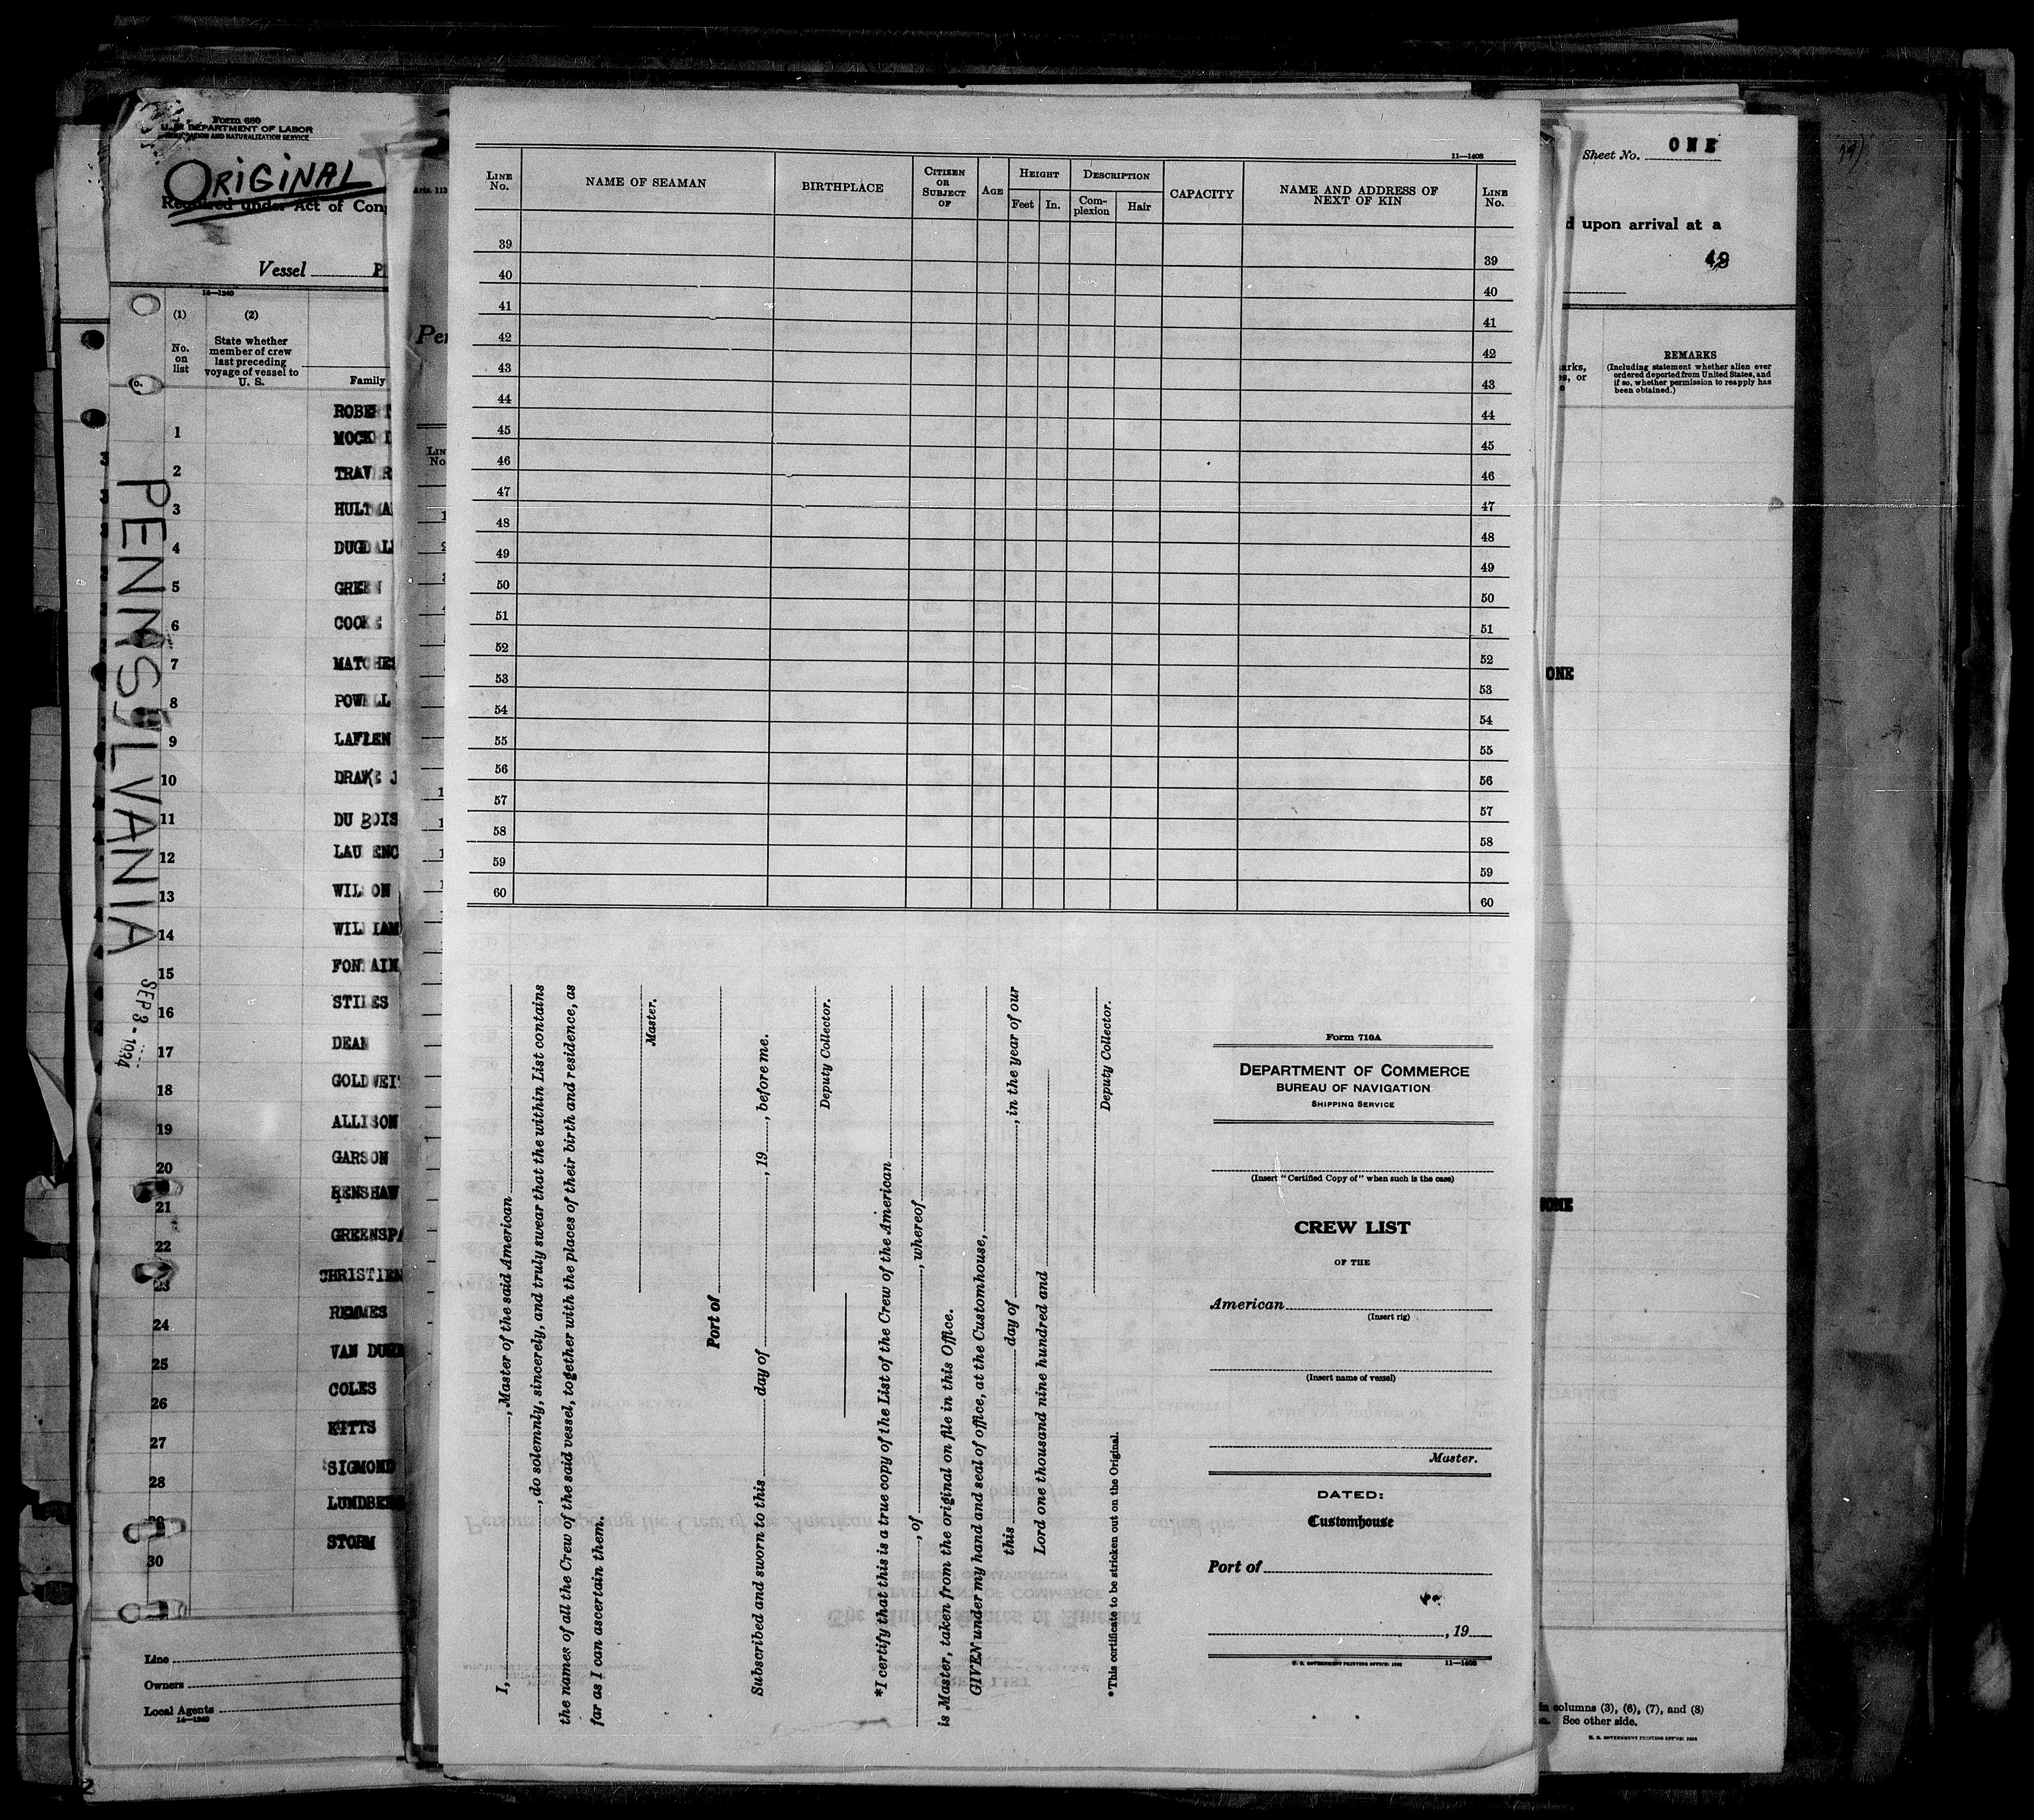 Form 680
U. S. DEPARTMENT OF LABOR
IMMIGRATION AND NATURALIZATION SERVICE
ORIGINAL
Required under Act of Con
Vessel
14—1240
(1)
No.
on
list
(2)
State whether
member of crew
last preceding
voyage of vessel to
U. S.
Family
ROBERT
1 MOCK
2 TRAVER
3 HULTMA
4 DUGDAL
5 GREEN
6 COOKE
7 MATCHES
8 POWELL
9 LAFLEN
10 DRAKE J
11 DU BOIS
12 LAU ENC
13 WIL ON
14 WIL IAM
15 FONTAIN
16 STILES
17 DEAN
18 GOLDWEI
19 ALLISON
20 GARSON
21 RENSHAW
22 GREENSPA
23 CHRISTIEN
24 REMMES
25 VAN DU
26 COLES
27 KITTS
28 SIGMOND
29 LUNDBE
30 STORM
PENNSYLVANIA
SEP 3 - 1934
Line
Owners
Local Agents
14—1240
Arts. 113
Per
LIN
No
11—1408
LINE No.
NAME OF SEAMAN
BIRTHPLACE
CITIZEN OR SUBJECT OF
AGE
HEIGHT
Feet
In.
DESCRIPTION
Com-plexion
Hair
CAPACITY
NAME AND ADDRESS OF NEXT OF KIN
LINE No.
39 39
40 40
41 41
42 42
43 43
44 44
45 45
46 46
47 47
48 48
49 49
50 50
51 51
52 52
53 53
54 54
55 55
56 56
57 57
58 58
59 59
60 60
I, , Master of the said American
, do solemnly, sincerely, and truly swear that the within List contains
the names of all the Crew of the said vessel, together with the places of their birth and residence, as
far as I can ascertain them.
Master.
Port of
Subscribed and sworn to this day of , 19 , before me.
Deputy Collector.
*I certify that this is a true copy of the List of the Crew of the American
, of , whereof
is Master, taken from the original on file in this Office.
GIVEN under my hand and seal of office, at the Customhouse,
this day of , in the year of our
Lord one thousand nine hundred and
Deputy Collector.
*This certificate to be stricken out on the Original.
Form 710A
DEPARTMENT OF COMMERCE
BUREAU OF NAVIGATION
SHIPPING SERVICE
(Insert "Certified Copy of" when such is the case)
CREW LIST
OF THE
American
(Insert rig)
(Insert name of vessel)
Master.
DATED:
Customhouse
Port of
, 19
U. S. GOVERNMENT PRINTING OFFICE: 11—1408
Sheet No. ONE
d upon arrival at a
arks,
es, or
e
REMARKS
(Including statement whether alien ever
ordered deported from United States, and
if so, whether permission to reapply has
been obtained.)
ONE
in columns (3), (6), (7), and (8)
See other side.
U. S. GOVERNMENT PRINTING OFFICE: